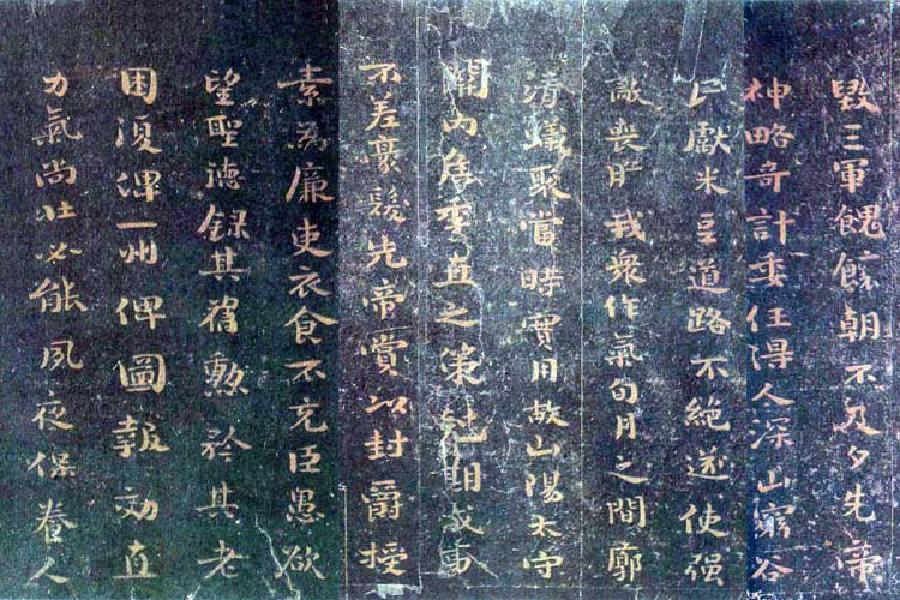 毀三軍餽饟朝不及夕先帝
神略奇計委任得人深山窮谷
民獻米豆道路不絕遂使强
敵喪膽我衆作氣旬月之間廓
清蟻聚當時實用故山陽太守
關內侯季直之策尅期成事
不差豪髮先帝賞以封爵授
素為廉吏衣食不充臣愚欲
望聖德錄其舊勲矜其老
困復俾一州俾圖報効直
力氣尚壯必能夙夜保養人